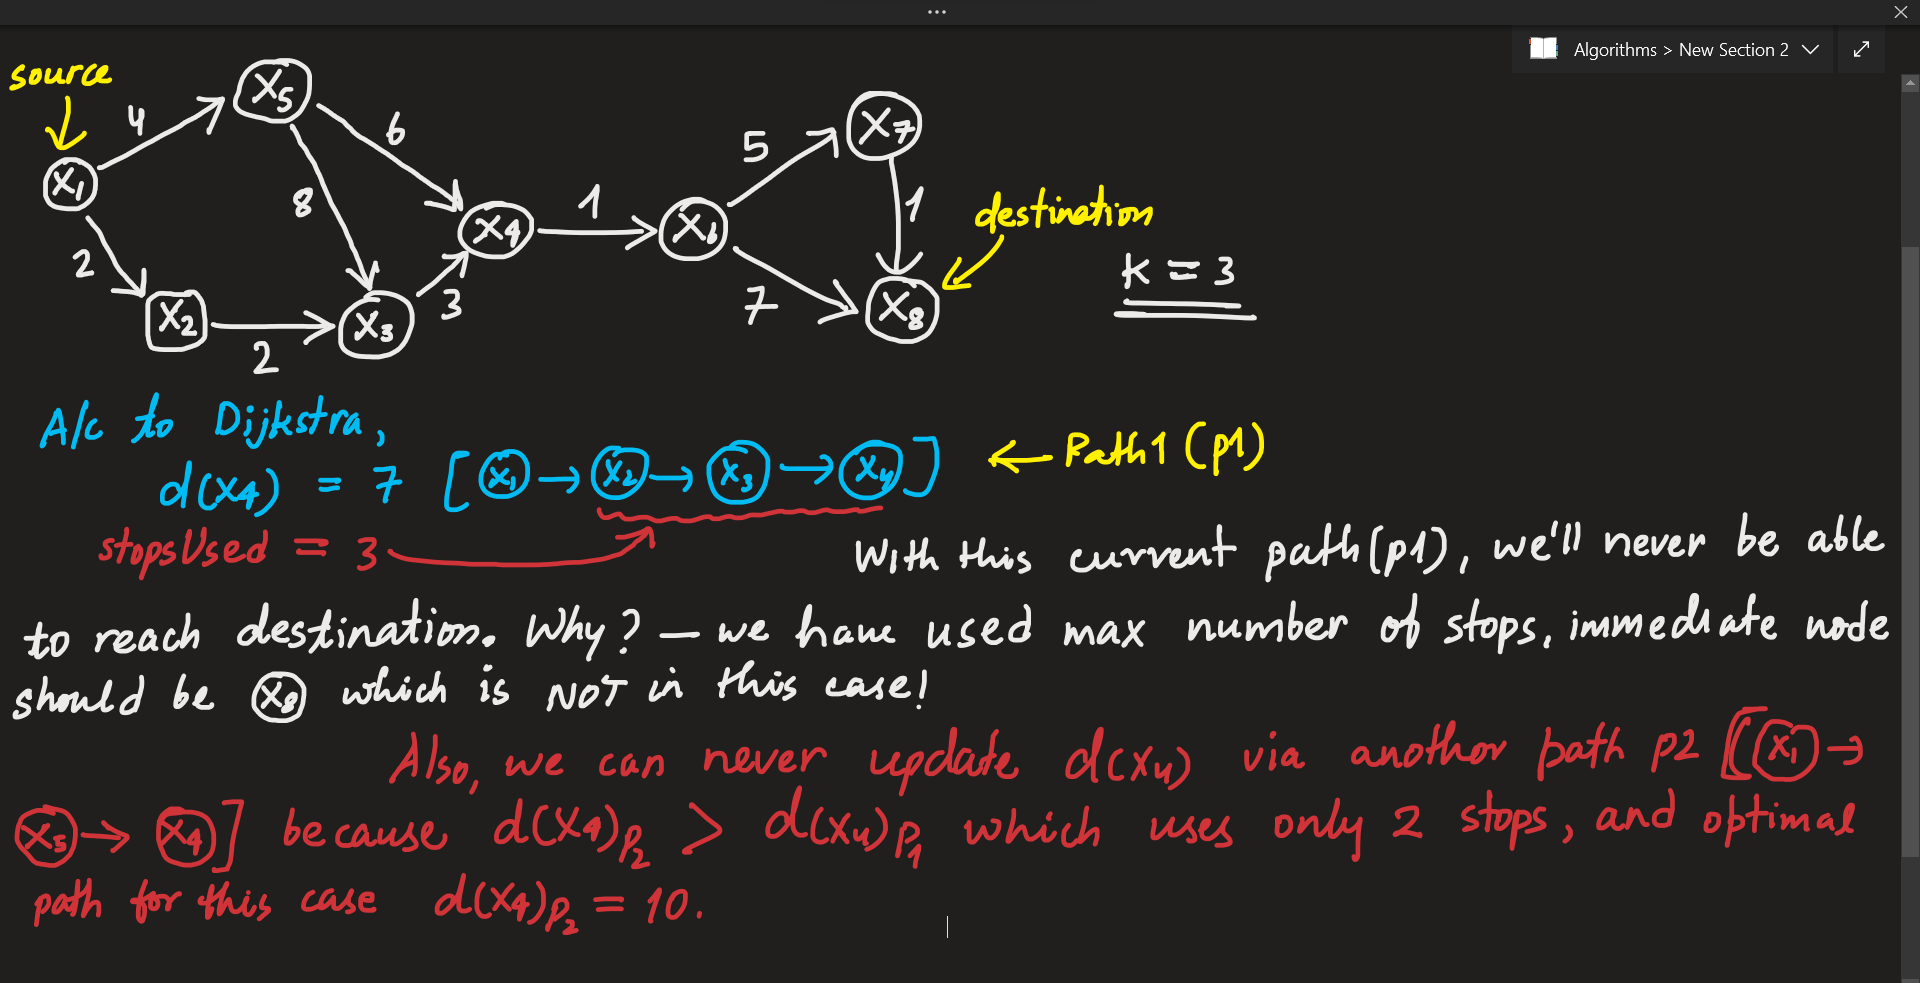 Algorithms > New Section 2
source
4
x5
6
x7
5
x1
8
1
1
destination
x4
x6
2
K = 3
3
7
x8
x2
x3
2
A/c to Dijkstra,
d(x4) = 7 [x1 → x2 → x3 → x4] ← Path1 (p1)
stopsUsed = 3
With this current path(p1), we'll never be able
to reach destination. Why? — we have used max number of stops, immediate node
should be x8 which is NOT in this case!
Also, we can never update d(x4) via another path p2 [(x1 →
x5 → x4] because d(x4)p2 > d(x4)p1 which uses only 2 stops, and optimal
path for this case d(x4)p2 = 10.